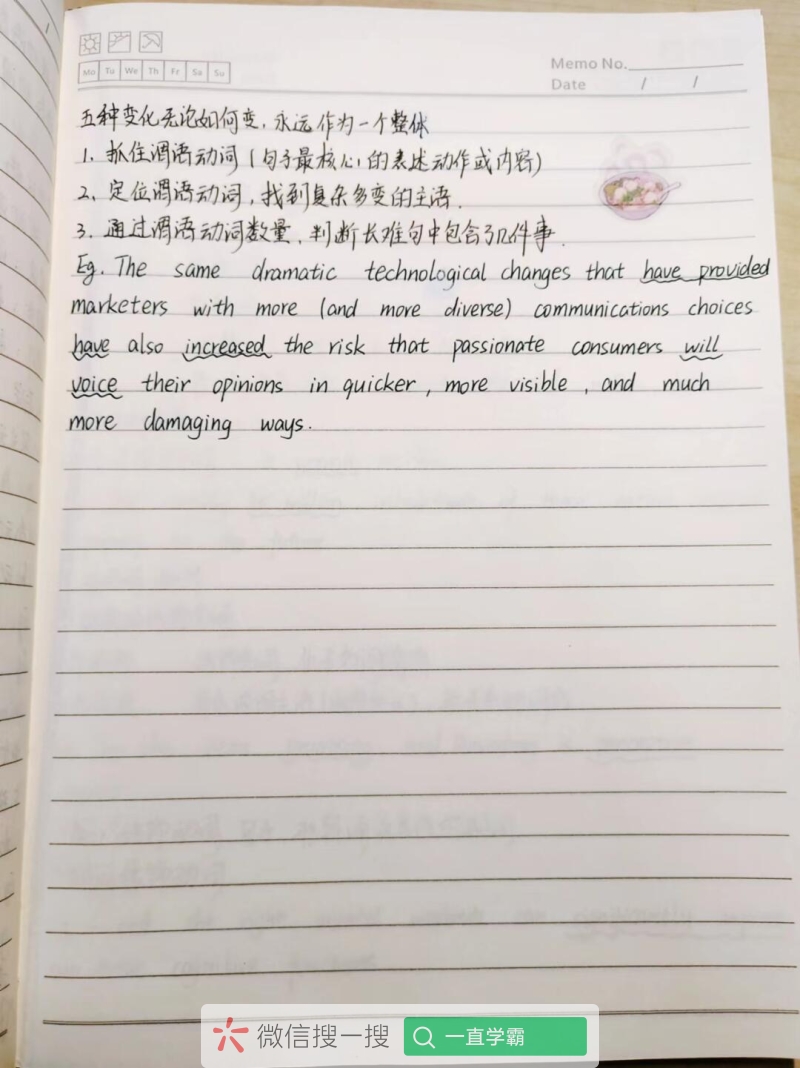 Mo Tu We Th Fr Sa Su
Memo No.
Date / /
五种变化无论如何变，永远作为一个整体
1. 抓住谓语动词（句子最核心的表述动作或内容）
2. 定位谓语动词，找到复杂多变的主语.
3. 通过谓语动词数量，判断长难句中包含了几件事.
Eg. The same dramatic technological changes that have provided
marketers with more (and more diverse) communications choices
have also increased the risk that passionate consumers will
voice their opinions in quicker, more visible, and much
more damaging ways.
微信搜一搜 一直学霸